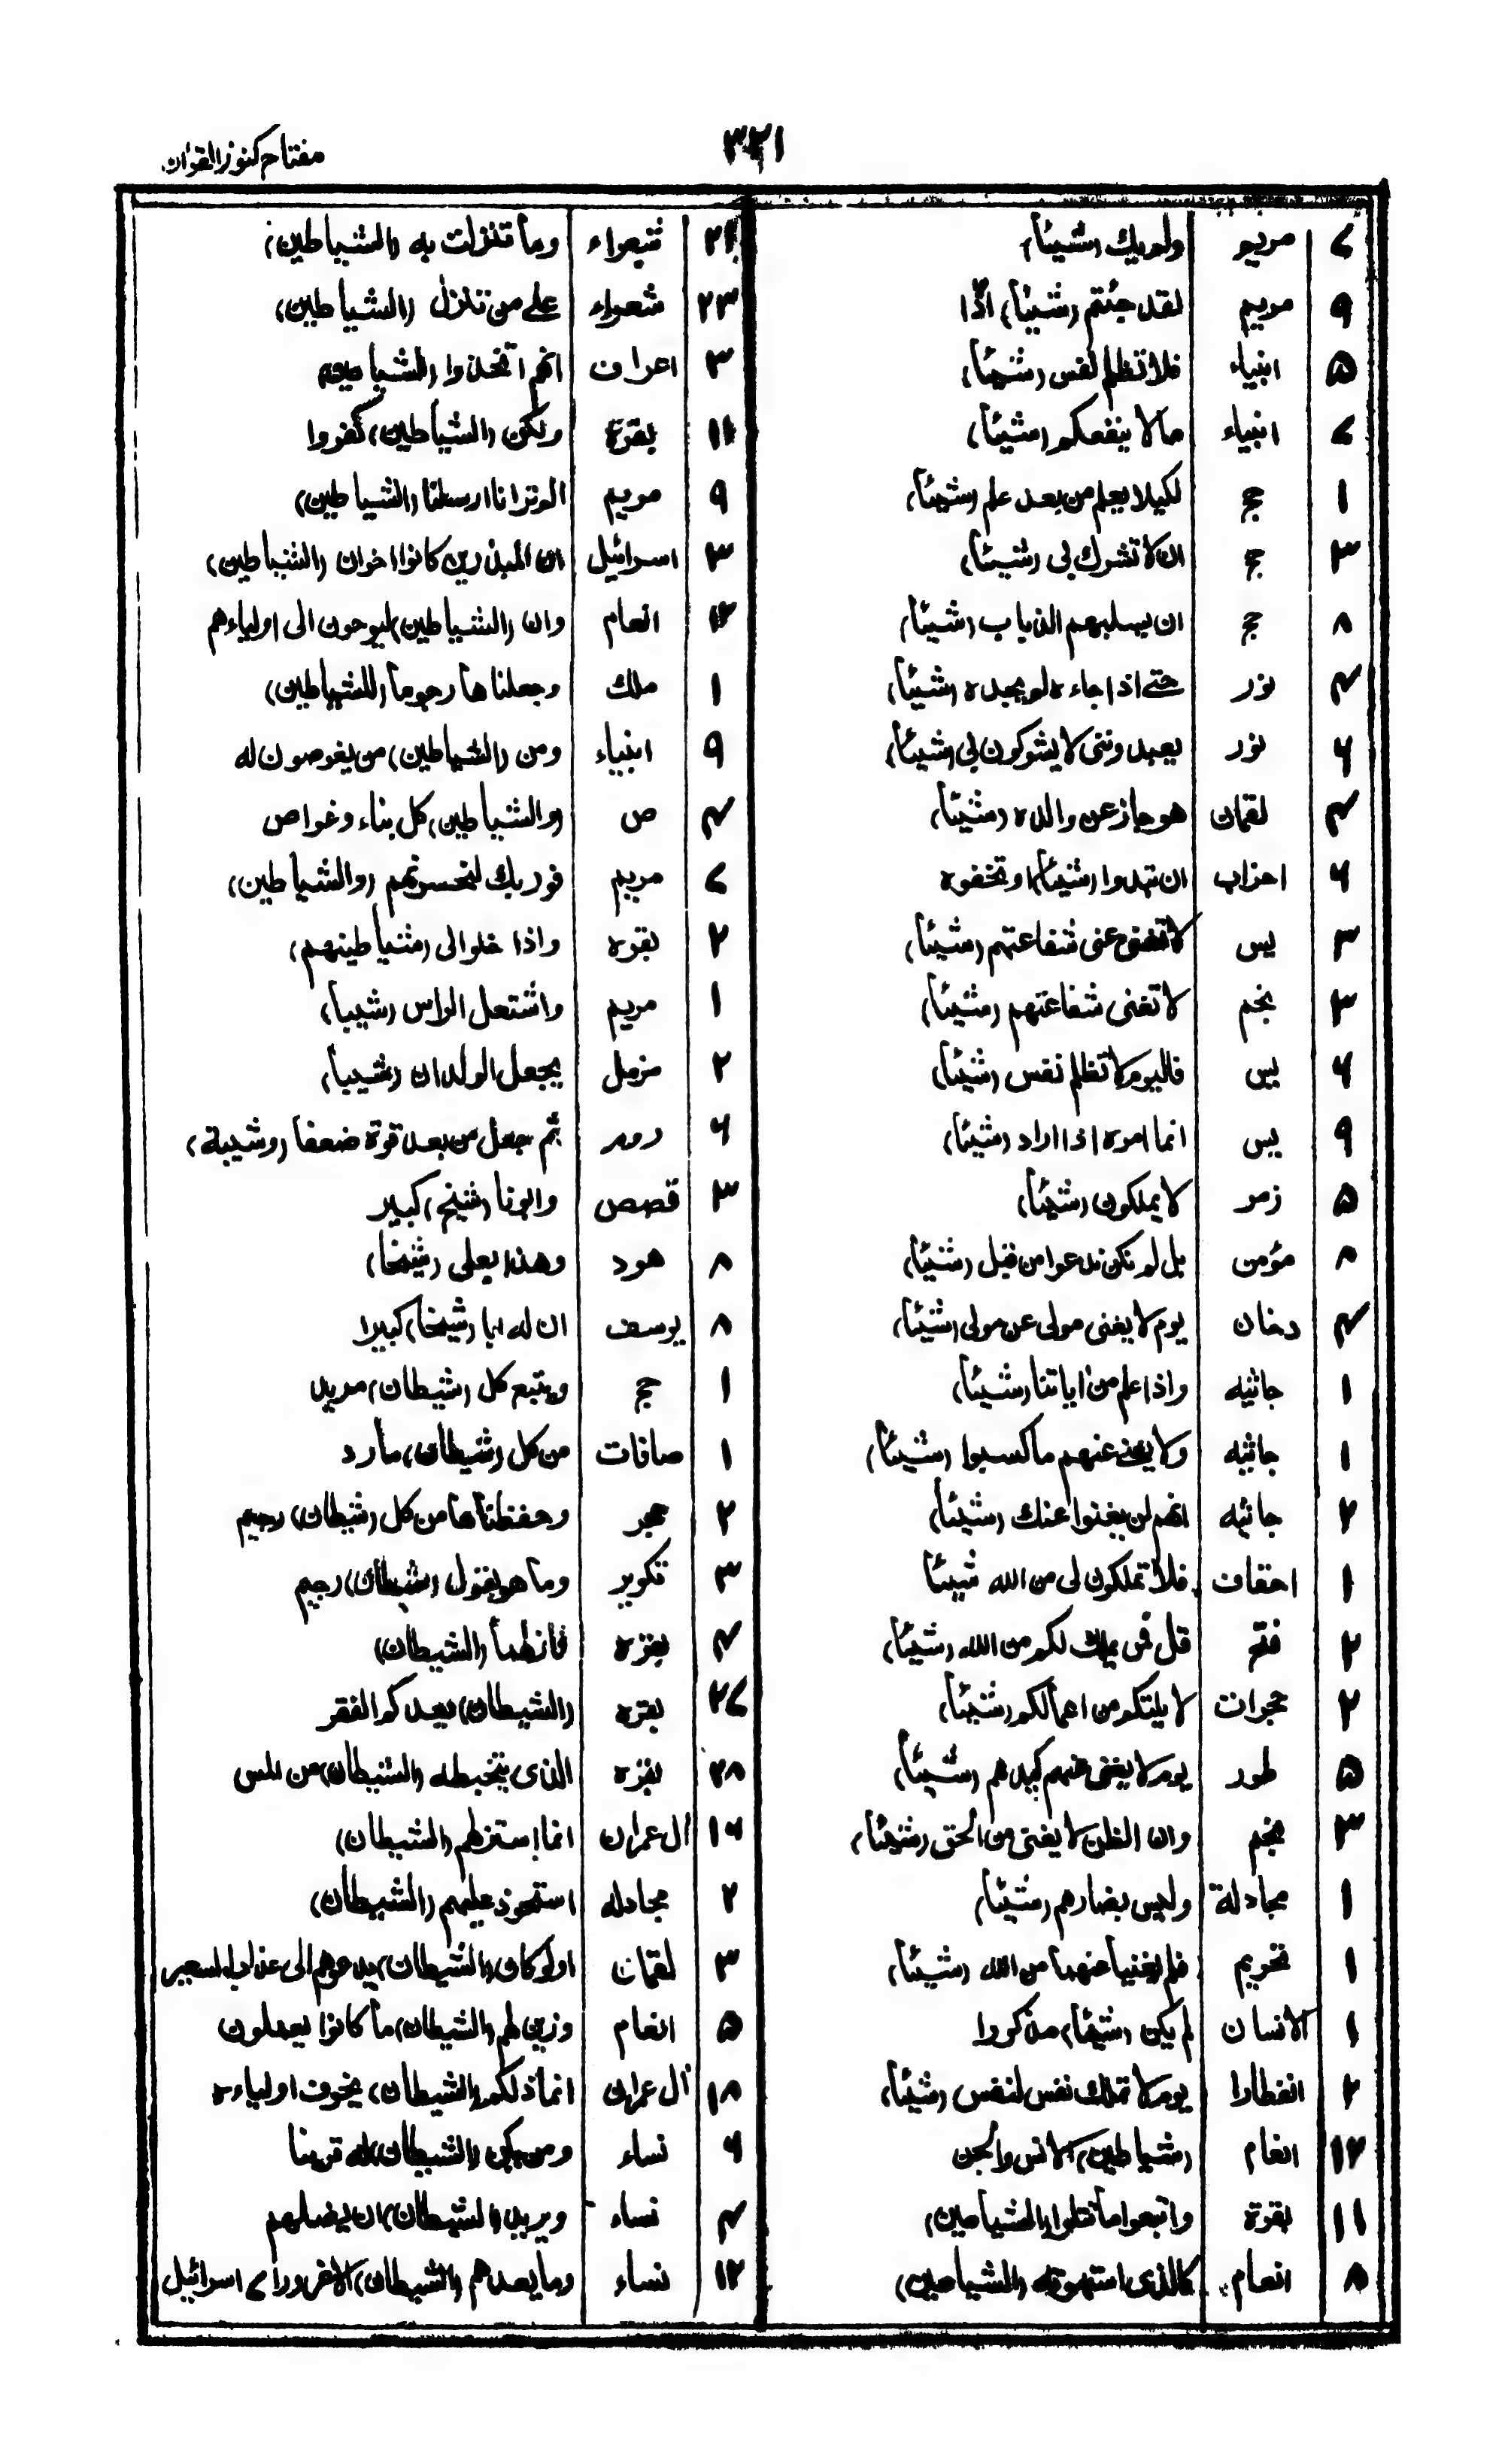 ٣٢١
مفتاح كنوز القرآن
٧ مريم ولم يك (شيئاً)
٩ مريم لقد جئتم (شيئاً) ادّا
٥ انبياء فلا تظلم نفس (شيئاً)
٧ انبياء مالا ينفعكم (شيئاً)
١ حج لكيلا يعلم من بعد علم (شيئاً)
٣ حج ان لا تشرك بى (شيئاً)
٨ حج ان يسلبهم الذباب (شيئاً)
٤ نور حتے اذا جاءه لم يجده (شيئاً)
٦ نور يعبدوننى لا يشركون بى (شيئاً)
٤ لقمان هو جاز عن والده (شيئاً)
٦ احزاب ان تبدوا (شيئاً) او تخفوه
٣ يس لا تغنى عنى شفاعتهم (شيئاً)
٣ نجم لا تغنى شفاعتهم (شيئاً)
٤ يس فاليوم لا تظلم نفس (شيئاً)
٩ يس انما امره اذا اراد (شيئاً)
٥ زمر لا يملكون (شيئاً)
٨ مؤمن بل لم نكن ندعوا من قبل (شيئاً)
٤ دخان يوم لا يغنى مولى عن مولى (شيئاً)
١ جاثيه واذا علم من اياتنا (شيئاً)
١ جاثيه ولا يغنے عنهم ما كسبوا (شيئاً)
٢ جاثيه انهم لن يغنوا عنك (شيئاً)
١ احقاف فلا تملكون لى من الله شيئاً
٢ فتح قل فمن يملك لكم من الله (شيئاً)
٢ حجرات لا يلتكم من اعمالكم (شيئاً)
٥ طور يوم لا يغنى عنهم كيدهم (شيئاً)
٣ نجم وان الظن لا يغنى من الحق (شيئاً)
١ مجادلة وليس بضارهم (شيئاً)
١ تحريم فلم يغنيا عنهما من الله (شيئاً)
١ الانسان لم يكن (شيئاً) مذكورا
٢ انفطارا يوم لا تملك نفس لنفس (شيئاً)
١٢ انعام (شياطين) الانس والجن
١١ بقرة واتبعوا ما تتلوا (الشياطين)
٨ انعام كالذى استهوته (الشياطين)
٢٤ شعراء وما تنزلت به (الشياطين)
٢٣ شعراء علے من تنزل (الشياطين)
٣ اعراف انهم اتخذوا (الشياطين)
١١ بقرة ولكن (الشياطين) كفروا
٩ مريم الم تر انا ارسلنا (الشياطين)
٣ اسرائيل ان المبذرين كانوا اخوان (الشياطين)
١٢ انعام وان (الشياطين) ليوحون الى اولياءهم
١ ملك وجعلنا ها رجوماً (للشياطين)
٩ انبياء ومن (الشياطين) من يغوصون له
٤ ص (والشياطين) كل بناء وغواص
٧ مريم فوربك لنحسرنهم (والشياطين)
٢ بقره واذا خلوا الى (شياطينهم)
١ مريم واشتعل الراس (شيباً)
٢ مزمل يجعل الولدان (شيباً)
٦ روم ثم جعل من بعد قوة ضعفا (وشيبة)
٣ قصص وابونا (شيخ) كبير
٨ هود وهذا بعلى (شيخا)
٨ يوسف ان له ابا (شيخا) كبيرا
١ حج ويتبع كل (شيطان) مريد
١ صافات من كل (شيطان) مارد
٢ حجر وحفظناها من كل (شيطان) رجيم
٣ تكوير وما هو بقول (شيطان) رجيم
٤ بقره فازلهما (الشيطان)
٢٧ بقره (الشيطان) يعدكم الفقر
٢٨ بقره الذى يتخبطه (الشيطان) من المس
١٦ ال عمران انما استزلهم (الشيطان)
٢ مجادله استحوذ عليهم (الشيطان)
٣ لقمان اولو كان (الشيطان) يدعوهم الى عذاب السعير
٥ انعام وزين لهم (الشيطان) ما كانوا يعملون
١٨ ال عمران انما ذلكم (الشيطان) يخوف اولياءه
٦ نساء ومن يكن (الشيطان) له قرينا
٤ نساء ويريد (الشيطان) ان يضلهم
١٢ نساء وما يعدهم (الشيطان) الا غرورا ٧ اسرائيل